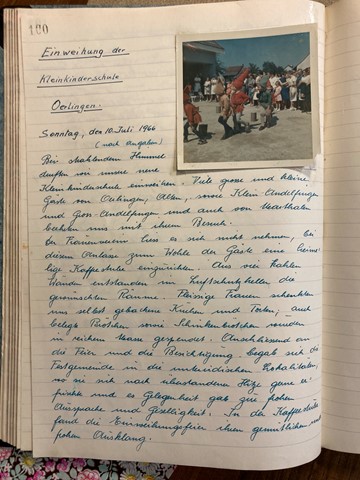 100
Einweihung der
Kleinkinderschule
Oerlingen.
Sonntag, den 10. Juli 1966
(nach eingaben)
Bei strahlendem Himmel
durften wir unsere neue
Kleinkinderschule einweihen. Viele grosse und kleine
Gäste von Oerlingen, Alten, sowie Klein Andelfingen
und Gross-Andelfingen und auch von Marthalen
beehrten uns mit ihrem Besuch.
Der Frauenverein liess es sich nicht nehmen, bei
diesem Anlasse zum Wohle der Gäste eine heime-
lige Kaffeestube einzurichten. Aus vier kahlen
Wänden entstanden im Luftschutzkeller die
gewünschten Räume. Fleissige Frauen schenkten
uns selbst gebackene Kuchen und Torten, auch
belegte Brötchen sowie Schinkenbrötchen wurden
in reichem Masse gespendet. Anschliessend an
die Feier und die Besichtigung begab sich die
Festgemeinde in die unterirdischen Lokalitäten,
wo sie sich nach überstandener Hitze gerne er-
frischte und es Gelegenheit gab zu froher
Aussprache und Geselligkeit. In der Kaffeestube
fand die Einweihungsfeier ihren gemütlichen und
frohen Ausklang.